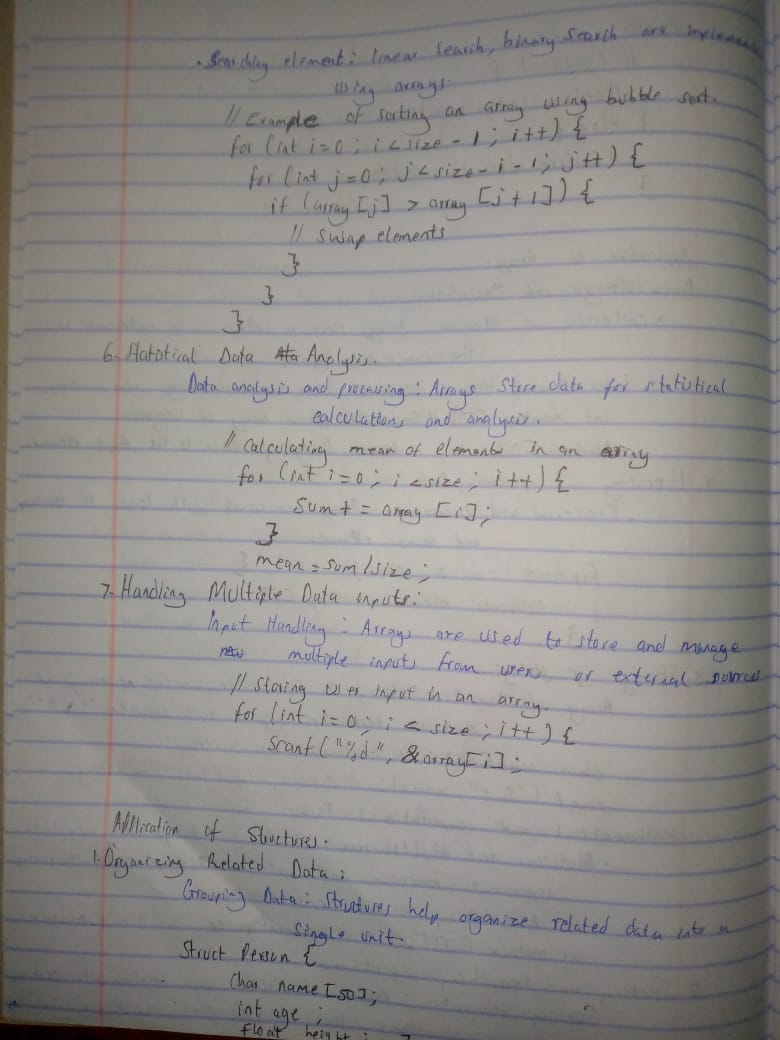 • Searching element: linear search, binary search are
using arrays.
// Example of sorting an array using bubble sort.
for (int i=0; i<size-1; i++) {
for (int j=0; j<size-i-1; j++) {
if (array[j] > array[j+1]) {
// swap elements
}
}
}
6. Statistical Data Analysis.
Data analysis and processing: Arrays store data for statistical
calculations and analysis.
// calculating mean of elements in an array
for (int i=0; i<size; i++) {
Sum += array[i];
}
mean = sum/size;
7. Handling Multiple Data inputs:
Input Handling: Arrays are used to store and manage
multiple inputs from users or external sources
// Storing user input in an array.
for (int i=0; i<size; i++) {
Scanf("%d", &array[i];
Application of Structures.
1. Organizing Related Data:
Grouping Data: Structures help organize related data into a
single unit.
Struct Person {
Char name[50];
int age;
float height;